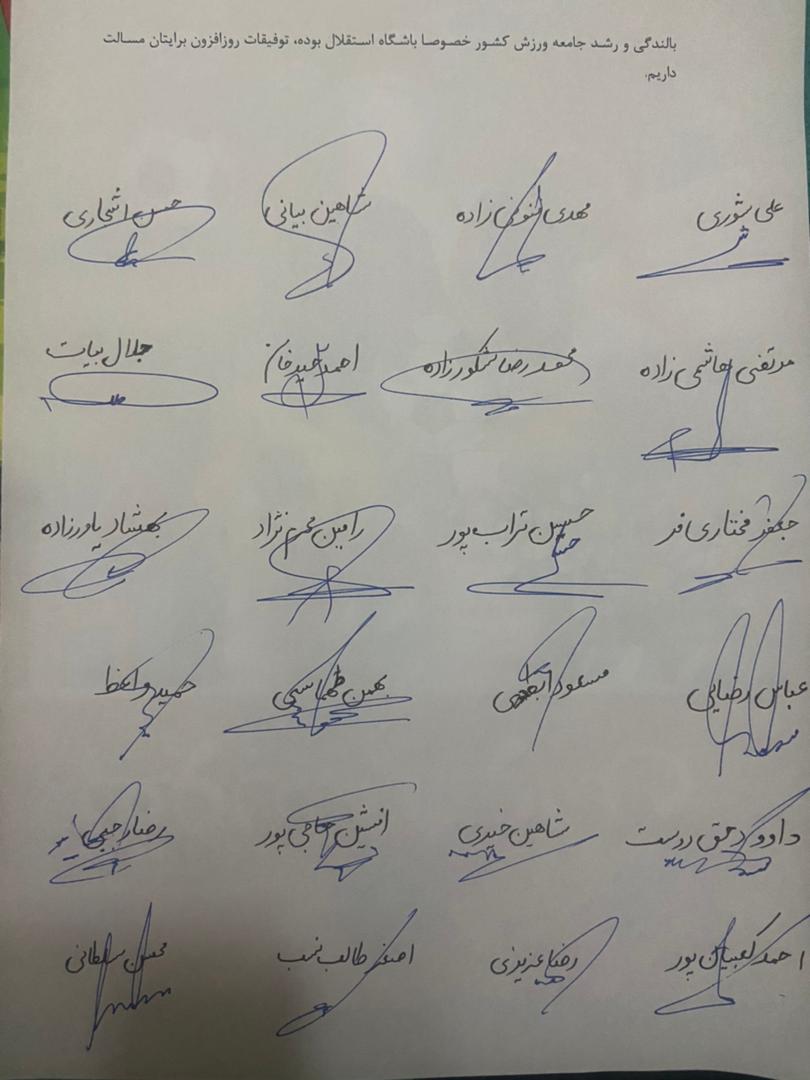 بالندگی و رشد جامعه ورزش کشور خصوصا باشگاه استقلال بوده، توفیقات روزافزون برایتان مسالت
داریم.
علی شوری مهدی فنونی زاده شاهین بیانی حسن اشجاری
مرتضی هاشمی زاده محمدرضا شکورزاده احمد جلال بیات
جعفر مختاری فر حسین تراب پور رامین محرم نژاد بهشاد یاورزاده
عباس رضایی مسعود بهمن طهماسبی حمید واعظ
داوود حق دوست شاهین خیری افشین حاجی پور رضا رجبی
احمد کعبیان پور رضا عزیزی اصغر طالب نسب محسن سلطانی